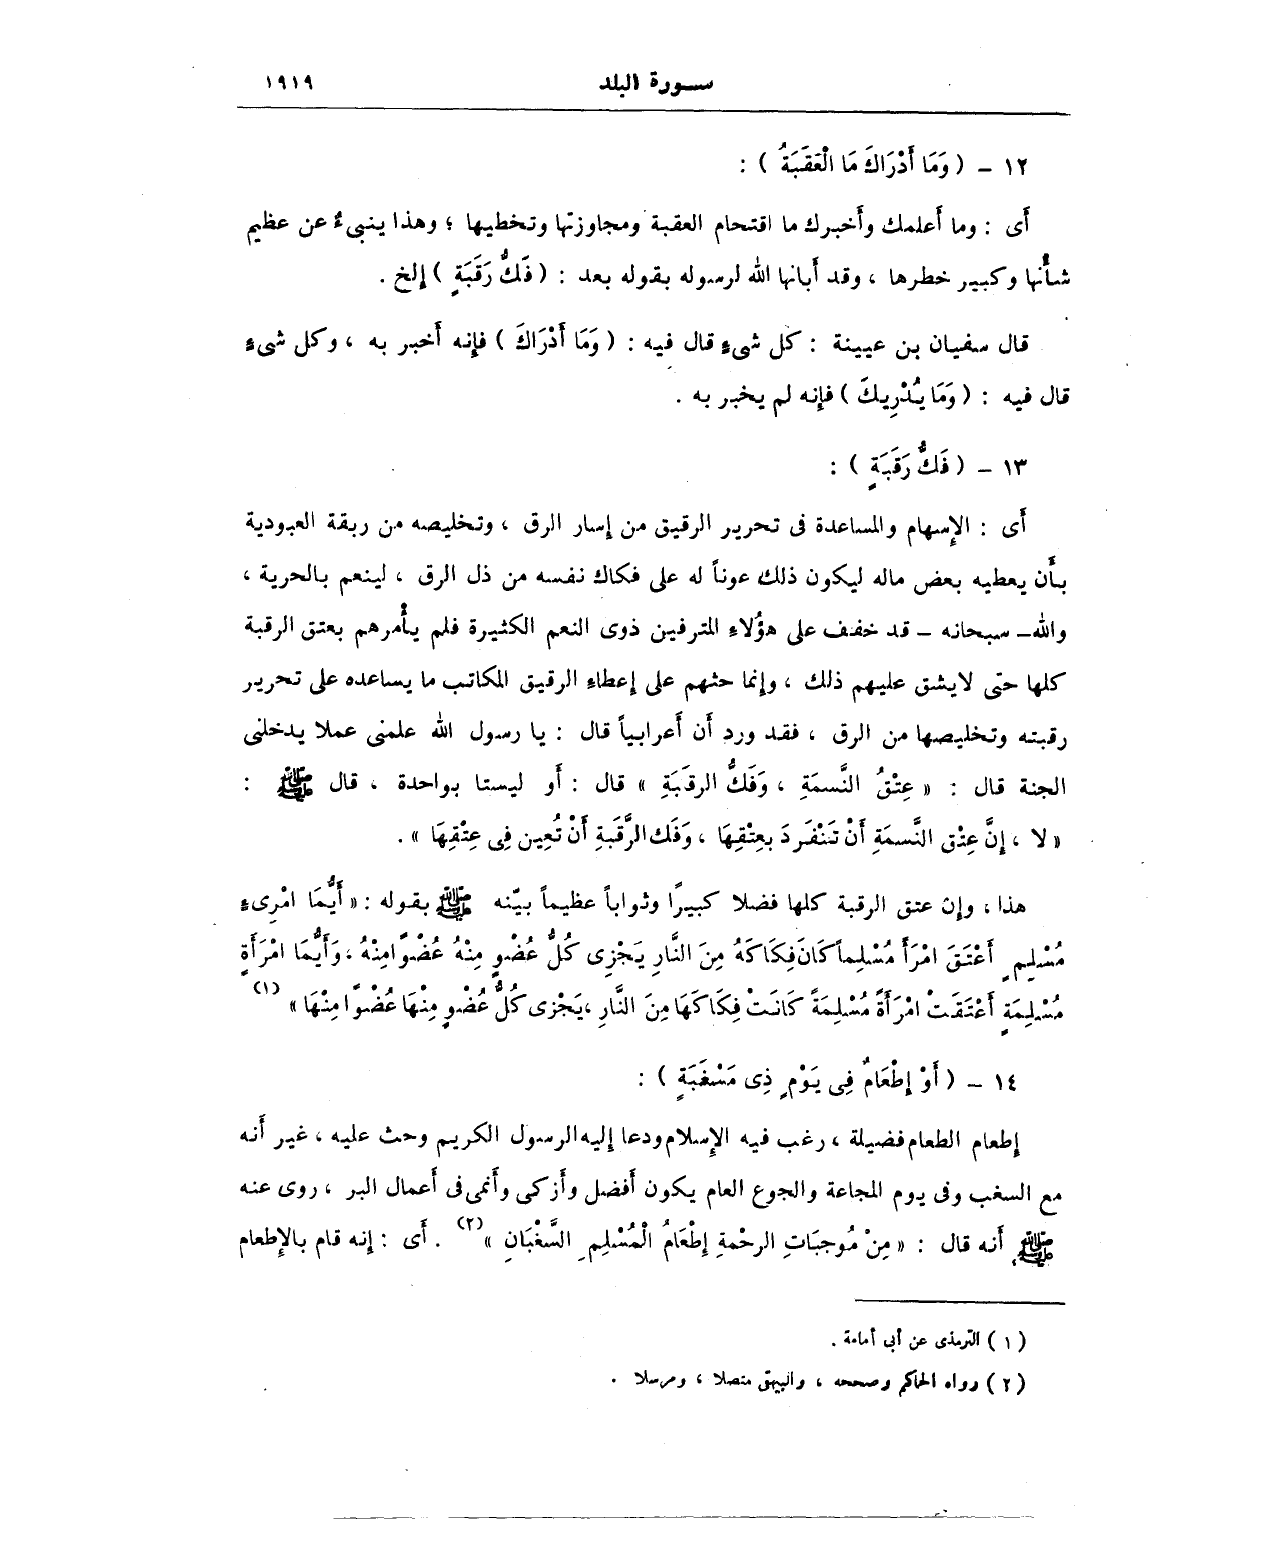 سورة البلد ١٩١٩
١٢ - ( وَمَا أَدْرَاكَ مَا الْعَقَبَةُ ) :
أَى : وما أَعلمك وأَخبرك ما اقتحام العقبة ومجاوزتها وتخطيها ؛ وهذا ينبىءُ عن عظيم
شأْنها وكبير خطرها ، وقد أَبانها الله لرسوله بقوله بعد : ( فَكُّ رَقَبَةٍ ) إلخ .
قال سفيان بن عيينة : كل شىءٍ قال فيه : ( وَمَا أَدْرَاكَ ) فإِنه أَخبر به ، وكل شىءٍ
قال فيه : ( وَمَا يُدْرِيكَ ) فإِنه لم يخبر به .
١٣ - ( فَكُّ رَقَبَةٍ ) :
أَى : الإِسهام والمساعدة فى تحرير الرقيق من إسار الرق ، وتخليصه من ربقة العبودية
بأَن يعطيه بعض ماله ليكون ذلك عوناً له على فكاك نفسه من ذل الرق ، لينعم بالحرية ،
والله - سبحانه - قد خفف على هؤُلاءِ المترفين ذوى النعم الكثيرة فلم يأْمرهم بعتق الرقبة
كلها حتى لايشق عليهم ذلك ، وإنما حثهم على إعطاءِ الرقيق المكاتب ما يساعده على تحرير
رقبته وتخليصها من الرق ، فقد ورد أَن أَعرابياً قال : يا رسول الله علمنى عملا يدخلنى
الجنة قال : « عِتْقُ النَّسمَةِ ، وَفَكُّ الرقَبَةِ » قال : أَو ليستا بواحدة ، قال ﷺ :
« لا ، إِنَّ عِتْق النَّسمَةِ أَنْ تَنْفَرِدَ بعِتْقِهَا ، وَفَك الرَّقَبَةِ أَنْ تُعِين فِى عِتْقِهَا » .
هذا ، وإن عتق الرقبة كلها فضلا كبيرًا وثواباً عظيماً بيّنه ﷺ بقوله : « أَيُّمَا امْرِىءٍ
مُسْلِمٍ أَعْتَقَ امْرَأً مُسْلِماً كَانَ فِكَاكَهُ مِنَ النَّارِ يَجْزِى كُلُّ عُضْوٍ مِنْهُ عُضْوًا مِنْهُ ، وَأَيُّمَا امْرَأَةٍ
مُسْلِمَةٍ أَعْتَقَتْ امْرَأَةً مُسْلِمَةً كَانَتْ فِكَاكَهَا مِنَ النَّارِ ، يَجْزى كُلُّ عُضْوٍ مِنْهَا عُضْوًا مِنْهَا » (١)
١٤ - ( أَوْ إِطْعَامٌ فِى يَوْمٍ ذِى مَسْغَبَةٍ ) :
إطعام الطعام فضيلة ، رغب فيه الإِسلام ودعا إليه الرسول الكريم وحث عليه ، غير أَنه
مع السغب وفى يوم المجاعة والجوع العام يكون أَفضل وأَزكى وأَنمى فى أَعمال البر ، روى عنه
ﷺ أَنه قال : « مِنْ مُوجبَاتِ الرحْمةِ إِطْعَامُ الْمُسْلِمِ السَّغْبَانِ » (٢) . أَى : إنه قام بالإِطعام
( ١ ) الترمذى عن أبى أمامة .
( ٢ ) رواه الحاكم وصححه ، والبيهق متصلا ، ومرسلا .